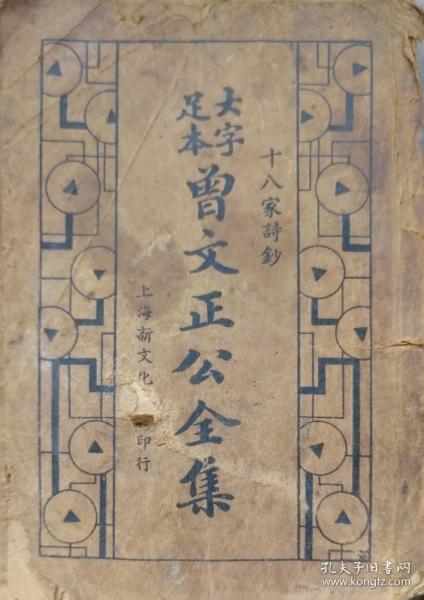 十八家詩鈔
大字
足本
曾文正公全集
上海新文化
印行
孔夫子旧书网
www.kongfz.com